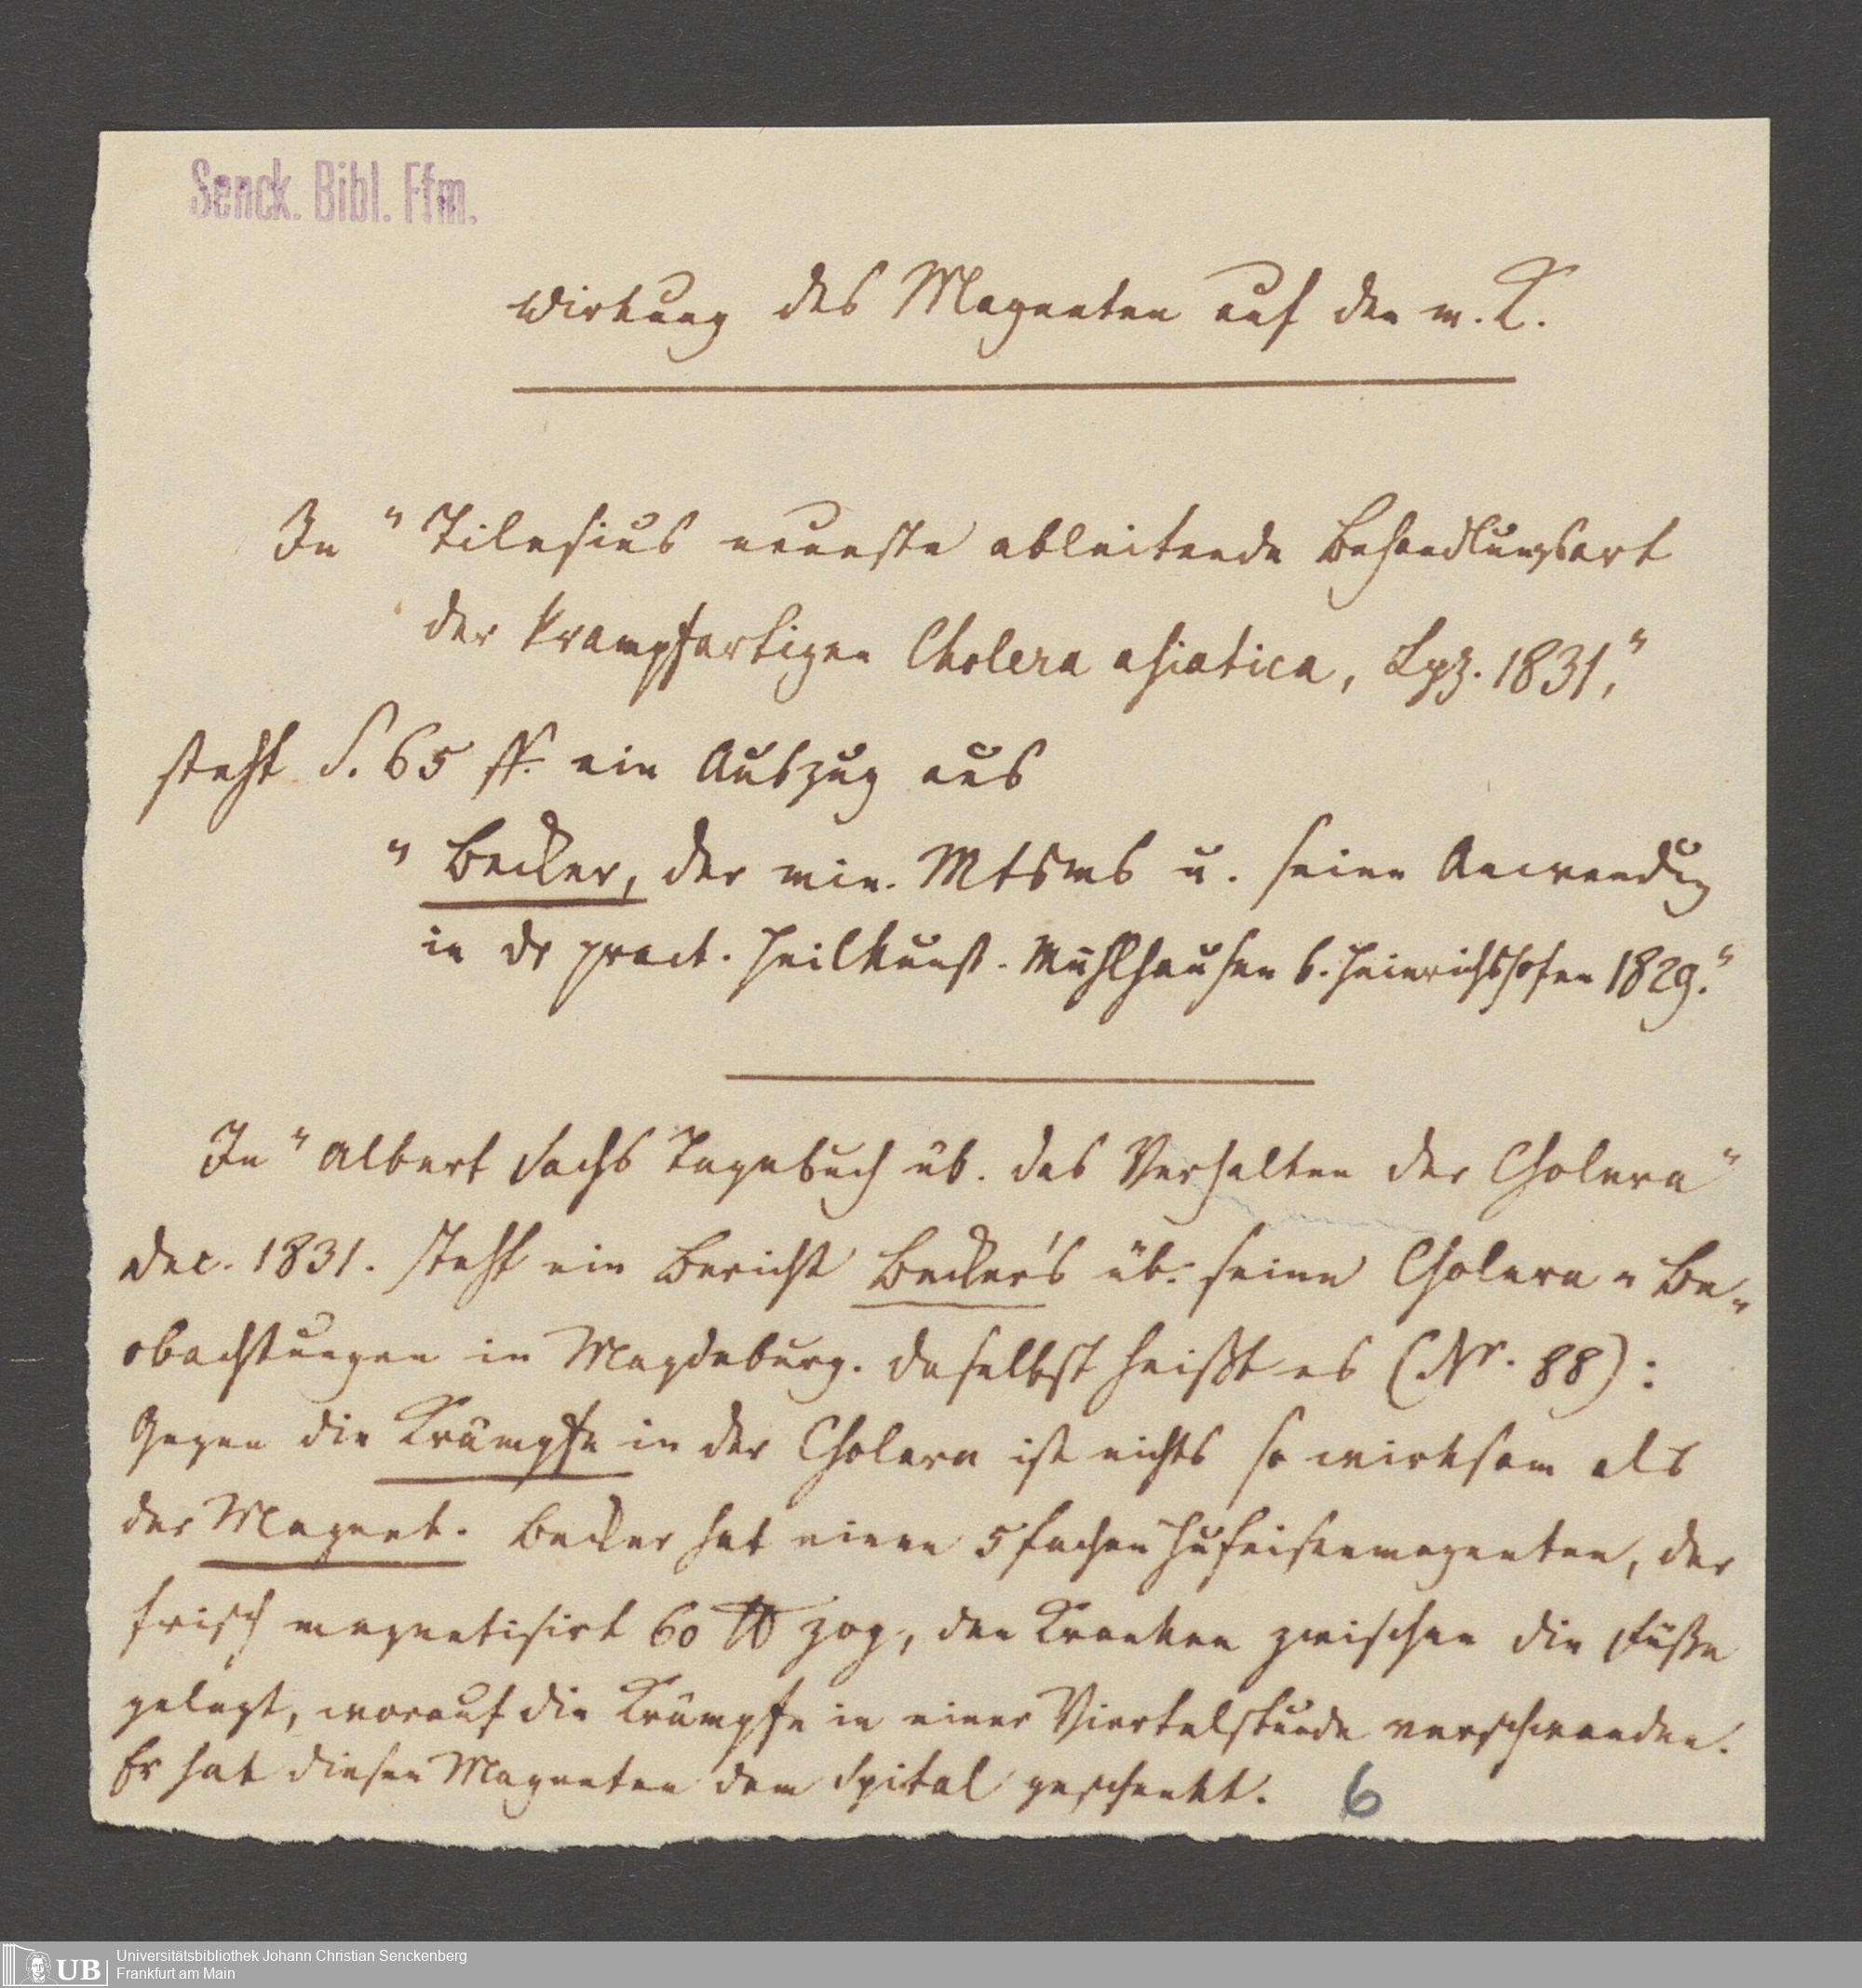 Senck. Bibl. Ffm.
Wirkung des Magneten auf den m. K.
In "Tilesius neueste ableitende Behandlungsart
der krampfartigen Cholera asiatica, Lpz. 1831,"
steht S. 65 ff. ein Auszug aus
"Becker, der min. Mtsms u. seine Anwendug
in dr pract. Heilkunst. Mühlhausen b. Heinrichshofen 1829."
In "Albert Sachs Tagebuch üb. das Verhalten der Cholera"
Dec. 1831. steht ein Bericht Becker's üb. seine Cholera-Be-
obachtungen in Magdeburg. Daselbst heißt es (Nr. 88):
Gegen die Krämpfe in der Cholera ist nichts so wirksam als
der Magnet. Becker hat einen 5fachen Hufeisenmagneten, der
frisch magnetisirt 60 ℔ zog, den Kranken zwischen die Füße
gelegt, worauf die Krämpfe in einer Viertelstunde verschwanden.
Er hat diesen Magneten dem Spital geschenkt. 6
UB
Universitätsbibliothek Johann Christian Senckenberg
Frankfurt am Main